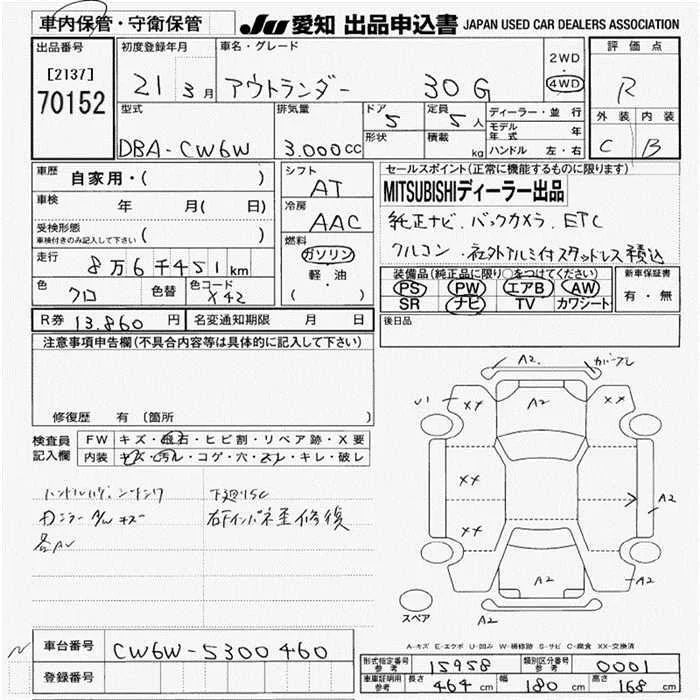 車内保管・守衛保管
JU愛知 出品申込書 JAPAN USED CAR DEALERS ASSOCIATION
出品番号 初度登録年月 車名・グレード 2WD・4WD 評価点
[2137]
70152 21 3月 アウトランダー 30G R
型式 排気量 ドア 5 定員 5人 ディーラー・並行 外装 内装
DBA-CW6W 3.000cc 形状 積載 kg モデル年式 年 C B
ハンドル 左・右
車歴 自家用・( ) シフト AT セールスポイント(正常に機能するものに限ります)
車検 年 月( 日) 冷房 AAC MITSUBISHIディーラー出品
受検形態 ( )
車検付きのみ記入して下さい
燃料 ガソリン 軽・油 ( ・ )
純正ナビ、バックカメラ、ETC
クルコン、社外アルミ付スタッドレス積込
走行 8万6千451km
色 クロ 色替 色コード X42
装備品(純正品に限り○をつけてください) 新車保証書
PS PW エアB AW 有・無
SR ナビ TV カワシート
R券 13.860円 名変通知期限 月 日 後日品
注意事項申告欄(不具合内容等は具体的に記入して下さい)
修復歴 有 (箇所 )
検査員記入欄 FW キズ・飛石・ヒビ割・リペア跡・X要
内装 キズ・汚れ・コゲ・穴・スレ・キレ・破レ
下廻りSC
A2 A2
U1 XX A2 XX
XX
XX A2
A2 A2
A2
スペア
A-キズ E-エクボ U-凹み W-補修跡 S-サビ C-腐食 XX-交換済
車台番号 CW6W-5300460
登録番号
形式指定番号 参考 15958 類別区分番号 参考 0001
車庫証明用 参考 長さ 464cm 幅 180cm 高さ 168cm